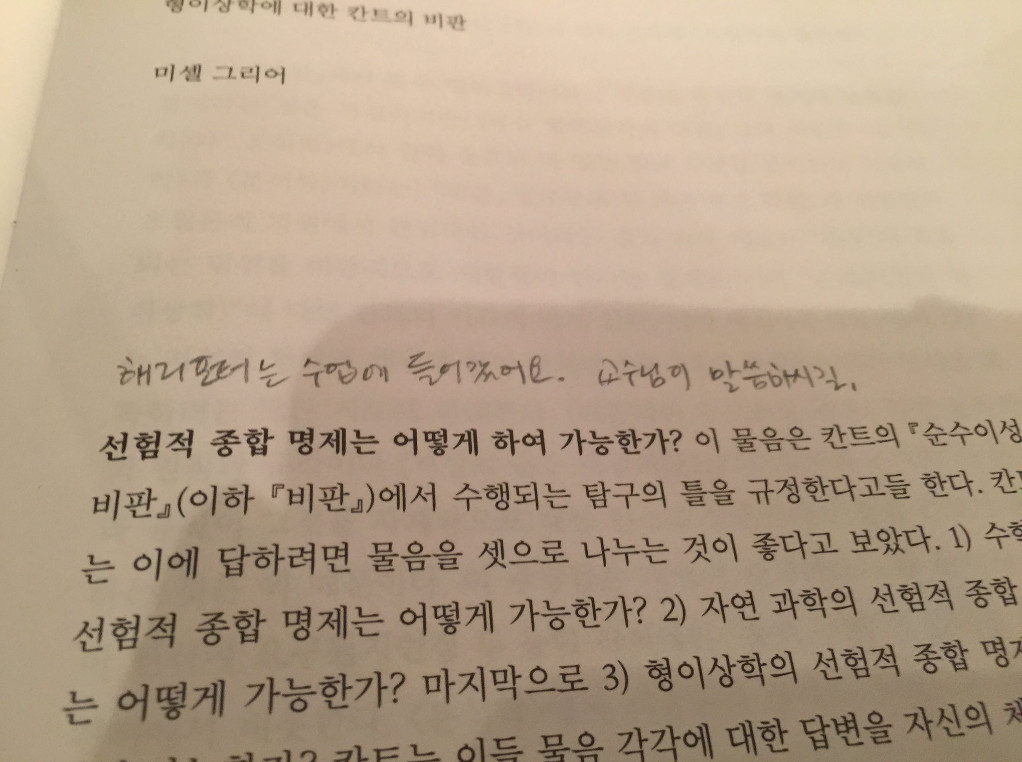 형이상학에 대한 칸트의 비판
미셸 그리어
해리포터는 수업에 들어갔어요. 교수님이 말씀하시길,
선험적 종합 명제는 어떻게 하여 가능한가? 이 물음은 칸트의 『순수이성
비판』(이하 『비판』)에서 수행되는 탐구의 틀을 규정한다고들 한다. 칸트
는 이에 답하려면 물음을 셋으로 나누는 것이 좋다고 보았다. 1) 수학
선험적 종합 명제는 어떻게 가능한가? 2) 자연 과학의 선험적 종합
는 어떻게 가능한가? 마지막으로 3) 형이상학의 선험적 종합 명제
칸트는 이들 물음 각각에 대한 답변을 자신의